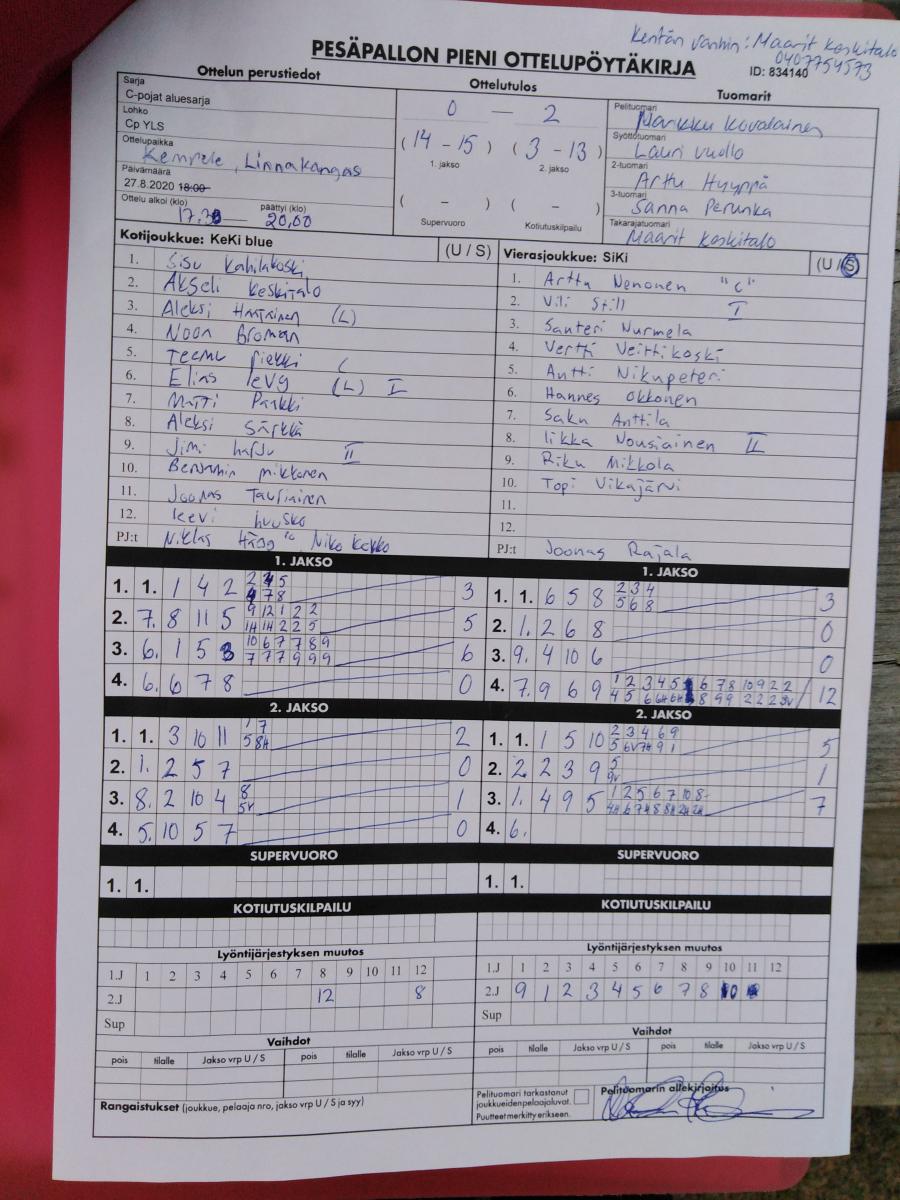 Kentän vanhin: Maarit Keskitalo
0407754573
PESÄPALLON PIENI OTTELUPÖYTÄKIRJA
ID: 834140
Ottelun perustiedot
Sarja
C-pojat aluesarja
Lohko
Cp YLS
Ottelupaikka
Kempele, Linnakangas
Päivämäärä
27.8.2020 18:00
Ottelu alkoi (klo) päättyi (klo)
20,00
Ottelutulos
0 — 2
(14 - 15) (3 - 13)
1. jakso 2. jakso
( - ) ( - )
Supervuoro Kotiutuskilpailu
Tuomarit
Pelituomari
Markku Kovalainen
Syöttötuomari
Lauri Vuollo
2-tuomari
Arttu Hyyppä
3-tuomari
Sanna Perunka
Takarajatuomari
Maarit Keskitalo
Kotijoukkue: KeKi blue (U / S)
1. Sisu Kahilakoski
2. Akseli Keskitalo
3. Aleksi (L)
4. Noon Broman
5. Teemu
6. Elias Levy (L) I
7. Matti Parkki
8. Aleksi Särkkä
9. Jimi Harju II
10. Benjamin Mikkonen
11. Joonas Tauriainen
12. Leevi Huusko
PJ:t Niklas Hägg Niko Kokko
Vierasjoukkue: SiKi (U / S)
1. Arttu Nenonen "C"
2. Vili Still I
3. Santeri Nurmela
4. Vertti Veittikoski
5. Antti Nikupeteri
6. Hannes Okkonen
7. Saku Anttila
8. Iikka Nousiainen II
9. Riku Mikkola
10. Topi Vikajärvi
11.
12.
PJ:t Joonas Rajala
1. JAKSO
1. 1. 1 4 2 3
2. 7. 8 11 5 9 12 1 2 2 5
3. 6. 1 5 3 10 6 7 7 8 9 6
7 7 7 9 9 9
4. 6. 6 7 8 0
1. JAKSO
1. 1. 6 5 8 2 3 4 3
5 6 8
2. 1. 2 6 8 0
3. 9. 4 10 6 0
4. 7. 9 6 9 12
2. JAKSO
1. 1. 3 10 11 1 7 2
5 8H
2. 1. 2 5 7 0
3. 8. 2 10 4 8 1
5V
4. 5. 10 5 7 0
2. JAKSO
1. 1. 1 5 10 2 3 4 6 9 5
5 6V 7H 9 1
2. 2. 2 3 9 5 1
9V
3. 1. 4 9 5 1 2 5 6 7 10 8 7
4. 6.
SUPERVUORO
1. 1.
SUPERVUORO
1. 1.
KOTIUTUSKILPAILU
KOTIUTUSKILPAILU
Lyöntijärjestyksen muutos
1.J 1 2 3 4 5 6 7 8 9 10 11 12
2.J 12 8
Sup
Lyöntijärjestyksen muutos
1.J 1 2 3 4 5 6 7 8 9 10 11 12
2.J 9 1 2 3 4 5 6 7 8 10
Sup
Vaihdot
pois tilalle Jakso vrp U / S pois tilalle Jakso vrp U / S
Vaihdot
pois tilalle Jakso vrp U / S pois tilalle Jakso vrp U / S
Rangaistukset (joukkue, pelaaja nro, jakso vrp U / S ja syy)
Pelituomari tarkastanut
joukkueiden pelaajaluvat.
Puutteet merkitty erikseen.
Pelituomarin allekirjoitus